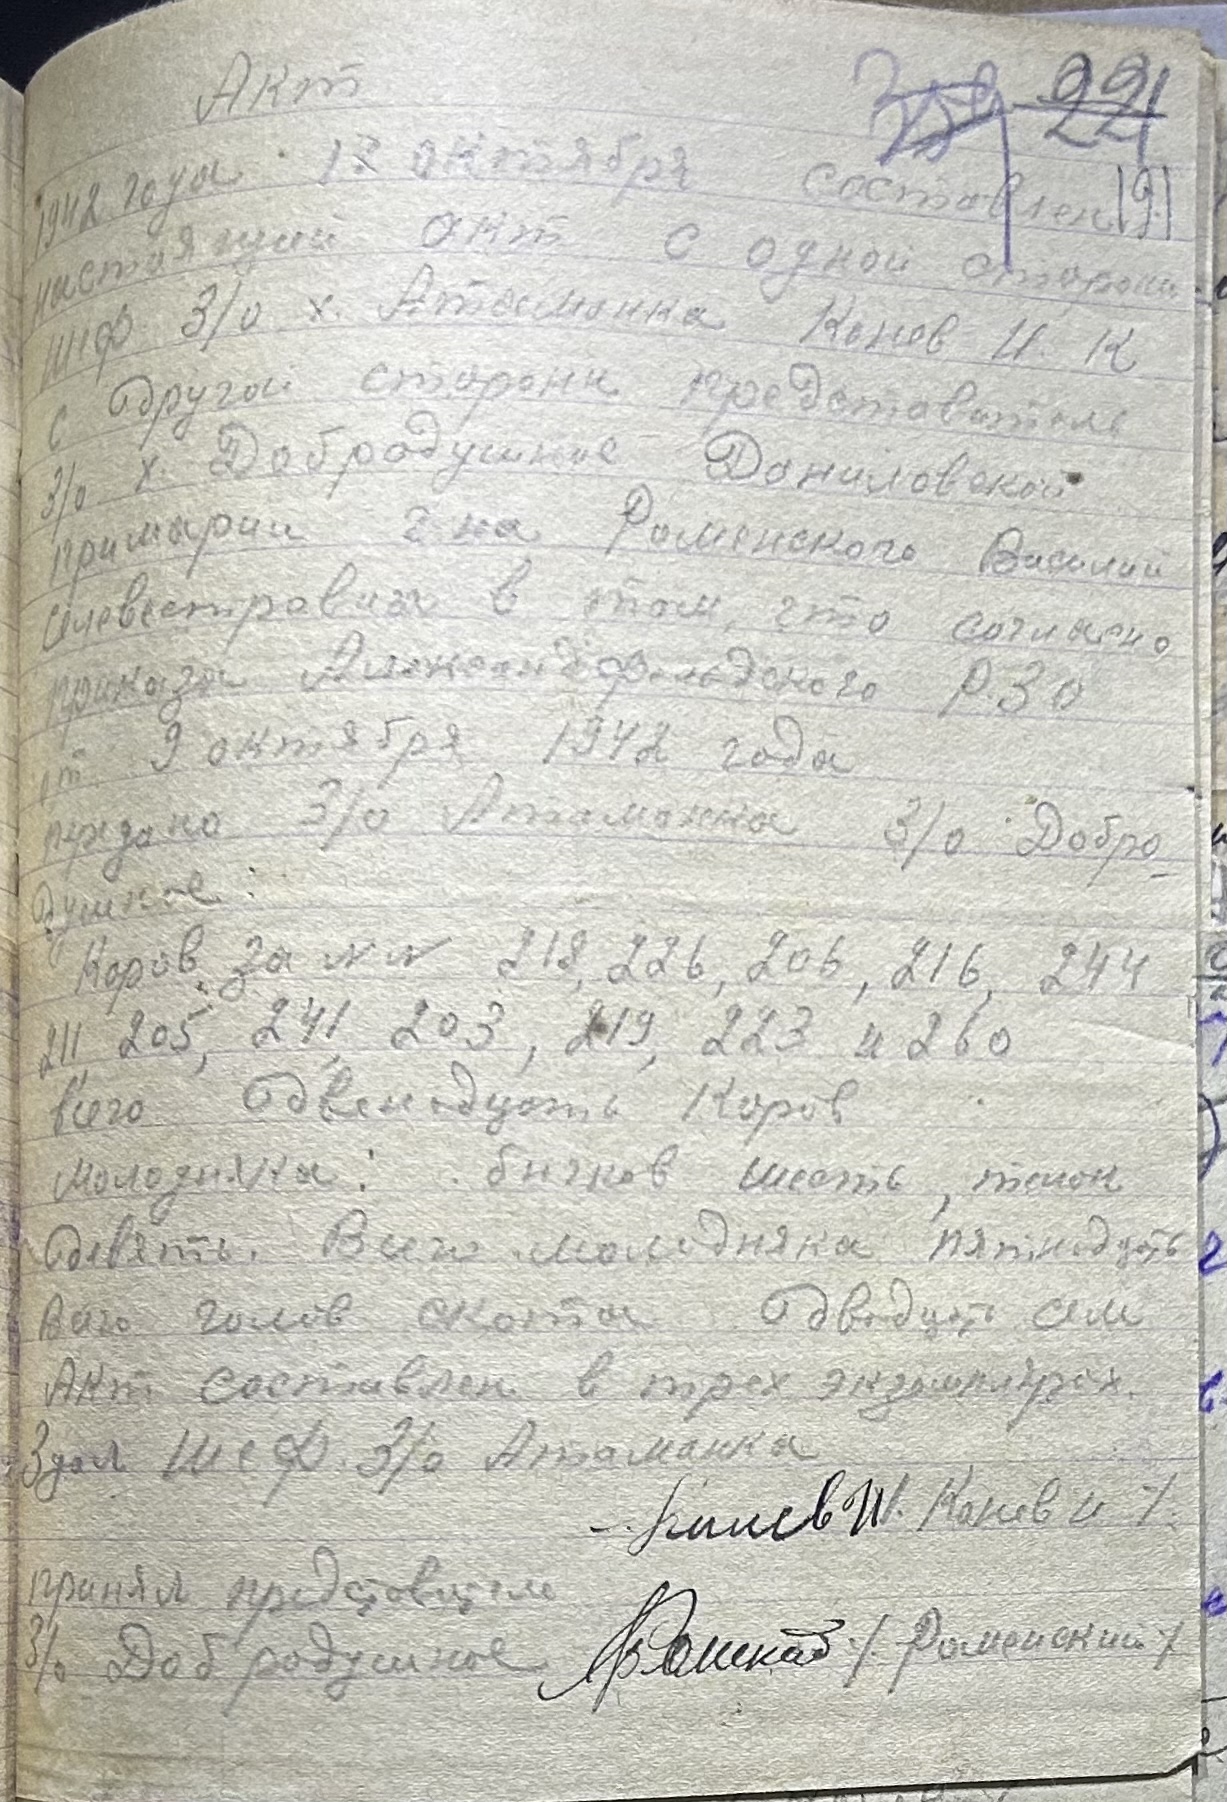 Акт 221
191
1942 года 12 октября составлен
настоящий акт с одной сторони
шеф З/о х. Атаманка Конев И. К
с другой сторони представитель
З/о х. Добродушное Даниловской
примарии г-на Раменского Василий
Силевестровича в том, что согласно
приказа Александрфельдского Р.З О
от 9 октября 1942 года
передано З/о Атаманка З/о Добро
душное:
Коров за N N 218, 226, 206, 216, 244
211 205, 241, 203, 219, 223 и 260
всего двенадцать Коров
Молодняка: бичков шесть, телок
девять. Всего молодняка пятнадцать
Всего голов скота двадцать сем
Акт составлен в трех экземплярах.
Здал Шеф З/о Атаманка
Конев И /.
принял представитель
З/о Добродушное /. Раменский /